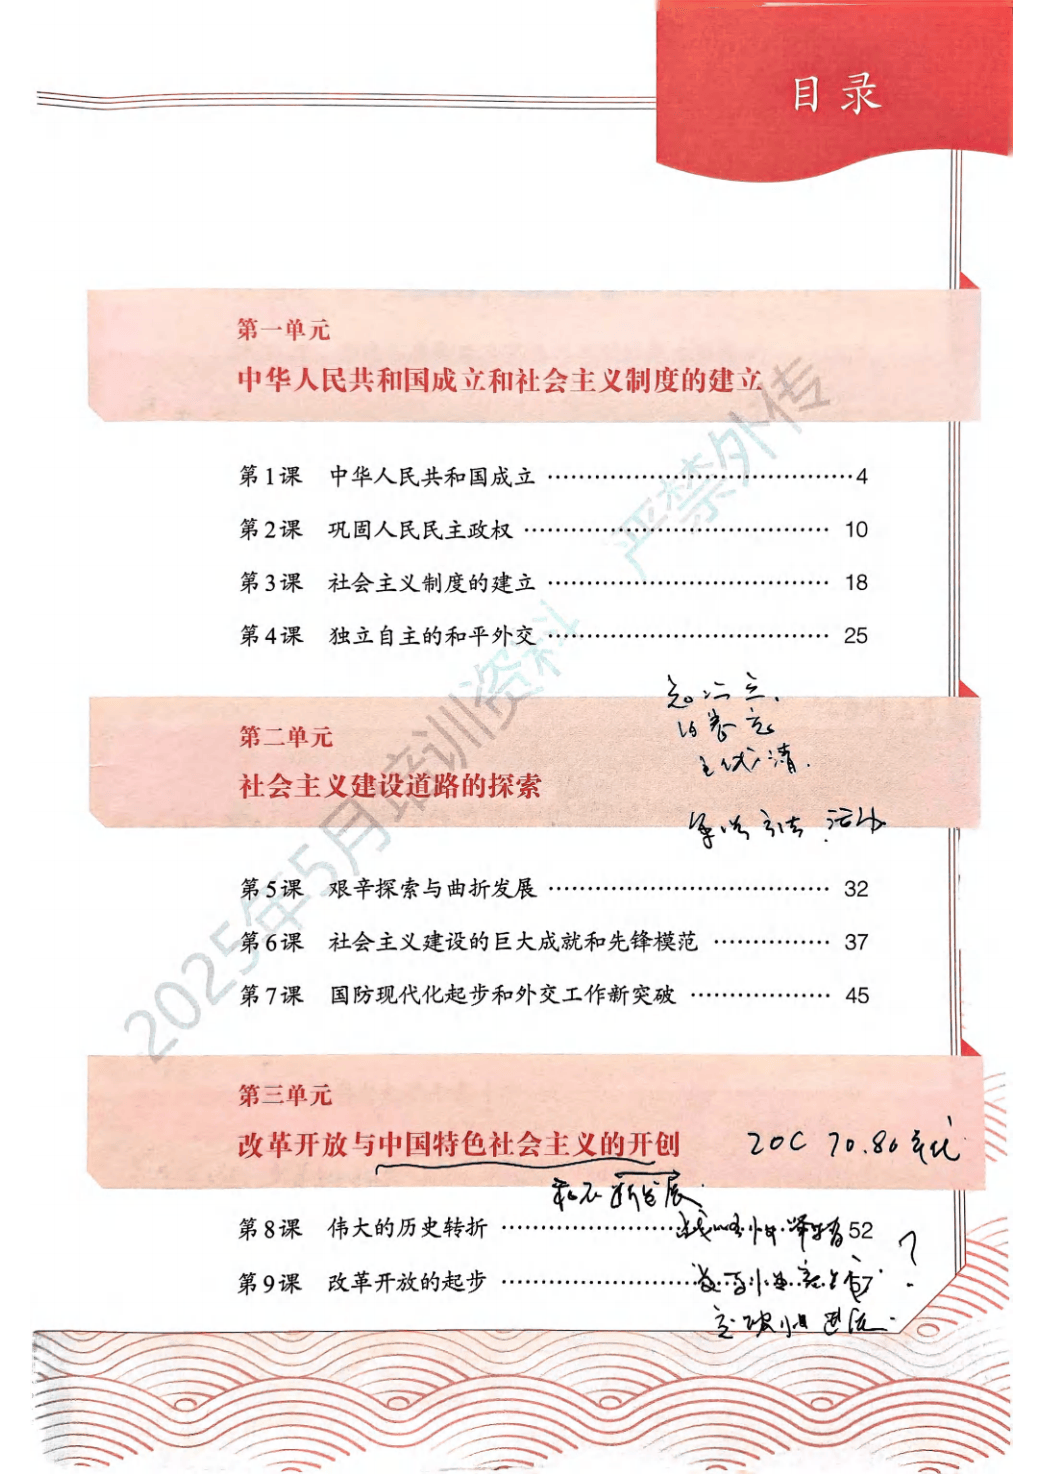 目录
第一单元
中华人民共和国成立和社会主义制度的建立
第1课 中华人民共和国成立 4
第2课 巩固人民民主政权 10
第3课 社会主义制度的建立 18
第4课 独立自主的和平外交 25
第二单元
社会主义建设道路的探索
第5课 艰辛探索与曲折发展 32
第6课 社会主义建设的巨大成就和先锋模范 37
第7课 国防现代化起步和外交工作新突破 45
第三单元
改革开放与中国特色社会主义的开创
20C 70.80年代
和不断发展
第8课 伟大的历史转折 52
第9课 改革开放的起步 57
?
2025年5月培训资料 严禁外传